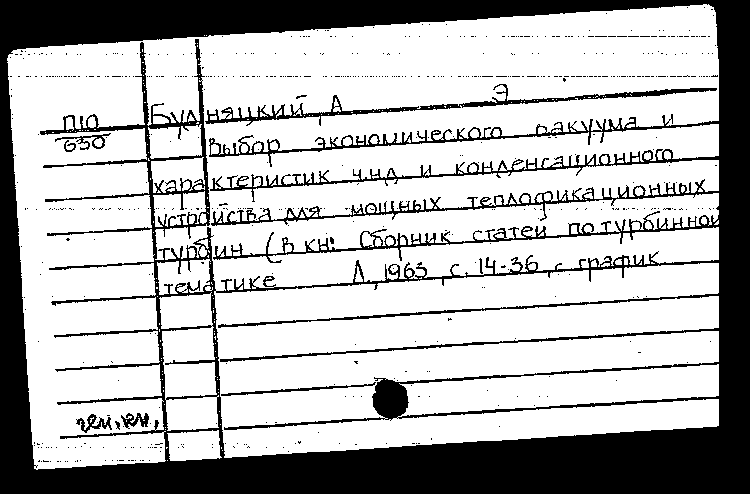 П10 Будняцкий, А Э
630 Выбор экономического вакуума и
характеристик ч.н.д. и конденсационного
устройства для мощных теплофикационных
турбин (в кн: Сборник статей по турбинной
тематике Л, 1963, с. 14-36, с график